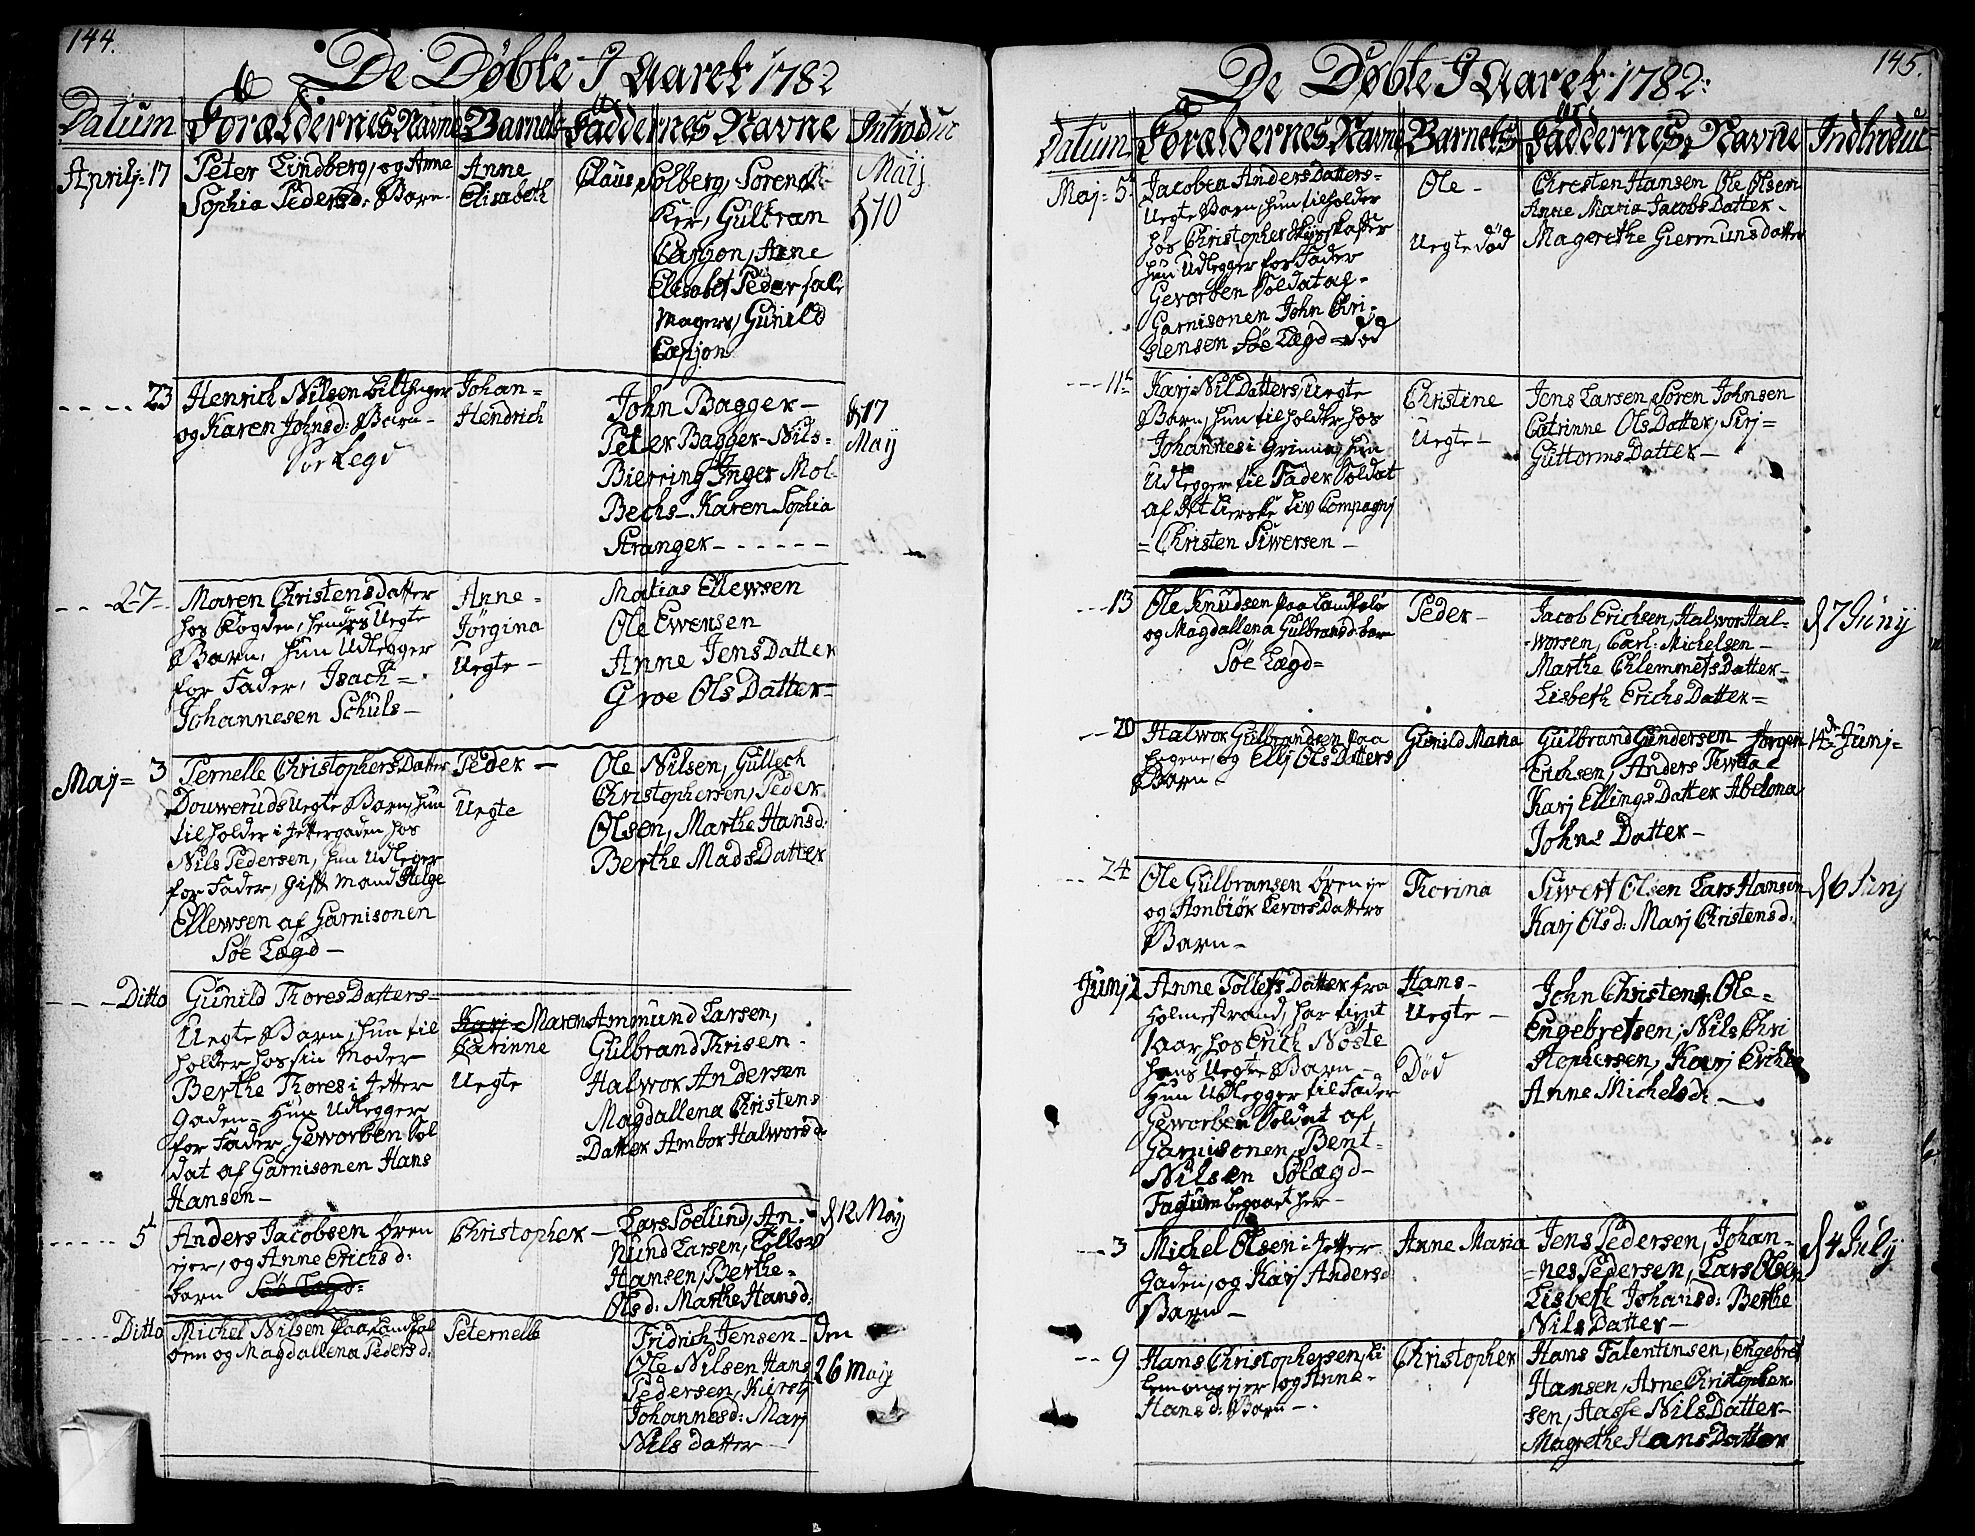 144.
De Döbte I Aaret 1782
Datum Forældernes Navne Barnets Faddernes Navne Introduc
April 17 Peter Lindberg, og Anne
Sophia Pedersd: Barn
Anne
Elisabeth
Claus Solberg, Soren
Ker, Gulbran
Capjon, Anne
Elisabet Peder Sale
Magers, Gunild
Capjon
Maij
d 10
23 Henrich Nilsen
og Karen Johnsd: Barn
Söe Legd
Johan=
Hendrich
John Bagger-
Peter Bagger-Nils-
Bierring Inger Mol-
Bechs-Karen Sophia
Stranger------
d 17
Maij
27 Maren Christens Datter
hos Fogden, hendes Uegte
Barn, hun Udlegger
for Fader, Isach=
Johannesen Schuls-
Anne-
Jörgina
Uegte-
Matias Ellewsen
Ole Ewensen
Anne Jens Datter
Groe Ols Datter-
Maj= 3 Pernelle Christophers Datter
Douweruds Uegte Barn, hun
tilholder i Jettergaden hos
Nils Pedersen, hun Udleger
for Fader, gift Mand Helge
Ellewsen af Garnisonen
Söe Lægd-
Peder-
Uegte
Ole Nilsen, Gullech
Christophersen, Peder
Olsen, Marthe Hansd:
Berthe Mads Datter
Ditto Gunild Thores Datters-
Uegte Barn, hun til
holder hos sin Moder
Berthe Thores i Jetter
gaden- Hun Udlegger
for Fader Geworben Sol
dat af Garnisonen Hans
Hansen-
Karj- Maren
Catrinne
Uegte
Ammund Larsen,
Gulbrand Thrisen-
Halwor Andersen
Magdallena Christens
Datter Ambor Halworsd
5t Anders Jacobsen Ören
ejer, og Anne Erichsd:
barn Söe Lægd-
Christopher-
Lars Soelund, An-
nund Larsen, Tollow
Hansen, Berthe-
Olsd: Marthe Hansd:
d 12 Maij
Ditto Michel Nilsen paa Landfal
öen og Magdallena Pedersd:
Peternelle
Fridrich Jensen-
Ole Nilsen Hans
Pedersen, Kirstj
Johannesd: Marj
Nils datter-
den
26 maij
145.
De Döbte I Aaret 1782:
Datum Forældernes Navne Barnets Faddernes Navne Indtroduc
Maj= 5t Jacobea Anders Datters-
Uegte Barn, hun tilholder
hos Christopher
hun Udlegger for Fader
Geworben Soldat af-
Garnisonen John Chri-
stensen Söe Lægd=död
Ole-
Uegte död
Christen Hansen Ole Olsen
Anne Maria Jacobs Datter-
Magerethe Giermuns datter
11t Karj Nil Datters, Uegte
Barn, hun tilholder hos
Johannes i Grinna, hun
Udlegger til Fader Soldat
af Det Lierske Liv Compagnj
=Christen Siwersen-
Christine
Uegte-
Jens Larsen, Sören Johnsen
Catrinne Ols Datter, Sirj=
Guttorms Datter-
13 Ole Knudsen paa Landfalö
og Magdallena Gulbransd: barn
Söe Lægd=
Peder-
Jacob Erichsen, Halwor Hal-
worsen, Carl: Michelsen-
Marthe Chlemmets Datter-
Lisbeth Erichs Datter-
d 7 Junij
20 Halwor Gulbrandsen paa
hogene, og Ellj Ols Datters
Barn-
Gunild Maria
Gulbrand Gundersen Jörgen
Erichsen, Anders
Karj Ellings Datter Abelona
Johns Datter-
14de Junj-
24 Ole Gulbransen Örenije
og Ambiör Levors Datters
Barn-
Thorina
Siwert Olsen Lars Hansen
Karj Olsd: Marj Christensd:
d 6 Junj
Junj 2 Anne Tollefs Datter fra
Holmestrand, har tient
1 aar hos Erich Nöste
hans Uegte Barn-
Hun Udlegger til Fader
Geworben Soldat af
Garnisonen Bent-
Nilsen Sölægd-
Fagtum begaaet her-
Hans-
Uegte-
Död
John Christens, Ole-
Engebretsen, Nils Chri
stophersen, Karj Erichs
Anne Michelsd:-
3 Michel Olsen i Jetter
gaden, og Karj Andersd
Barn-
Anne Maria
Jens Pedersen, Johan-
=nes Pedersen, Lars Olsen
Lisbeth Johansd: Berthe
Nils Datter-
d 4 July
9 Hans Christophersen, ti
lemonsejer, og Anne-
Hansd: Barn-.
Christopher
Hans Falentinsen, Engebret
Hansen, Arne Christopher
sen, Aasse Nils Datter-
Magrethe Hans Datter